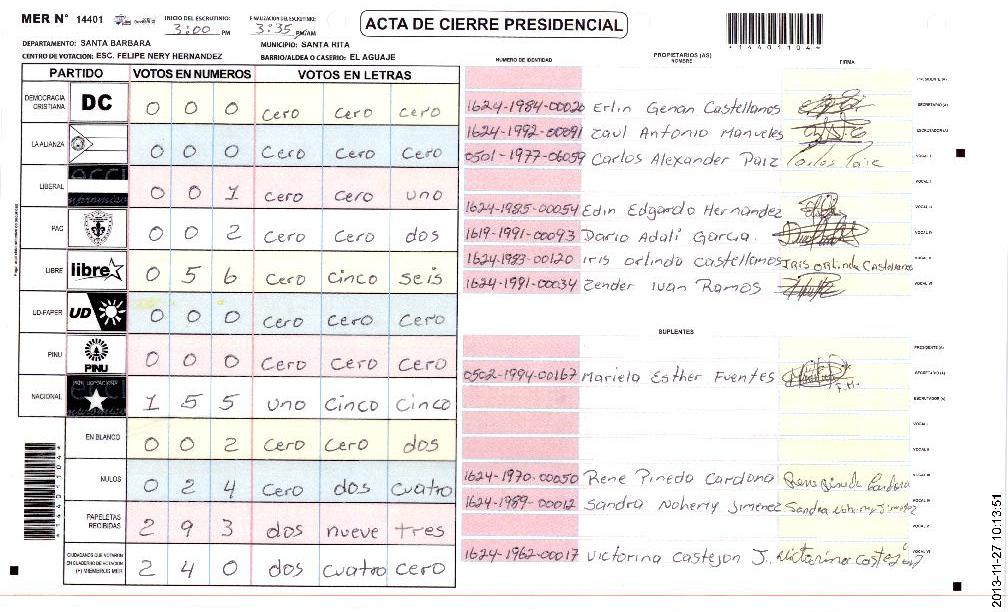 MER Nº 14401
INICIO DEL ESCRUTINIO: 3:00 PM
FINALIZACION DEL ESCRUTINIO: 3:35 PM/AM
ACTA DE CIERRE PRESIDENCIAL
DEPARTAMENTO: SANTA BARBARA
MUNICIPIO: SANTA RITA
CENTRO DE VOTACION: ESC. FELIPE NERY HERNANDEZ
BARRIO/ALDEA O CASERIO: EL AGUAJE
PARTIDO VOTOS EN NUMEROS VOTOS EN LETRAS
DEMOCRACIA CRISTIANA DC 0 0 0 cero cero cero
LA ALIANZA 0 0 0 cero cero cero
LIBERAL 0 0 1 cero cero uno
PAC 0 0 2 cero cero dos
LIBRE libre 0 5 6 cero cinco seis
UD-FAPER UD 0 0 0 cero cero cero
PINU PINU 0 0 0 cero cero cero
NACIONAL 1 5 5 uno cinco cinco
EN BLANCO 0 0 2 cero cero dos
NULOS 0 2 4 cero dos cuatro
PAPELETAS RECIBIDAS 2 9 3 dos nueve tres
CIUDADANOS QUE VOTARON EN CUADERNO DE VOTACION (+) MIEMBROS MER 2 4 0 dos cuatro cero
PROPIETARIOS (AS)
NUMERO DE IDENTIDAD NOMBRE FIRMA
PRESIDENTE (A)
1624-1984-00020 Erlin Genan Castellanos SECRETARIO (A)
1624-1992-00091 Zaul Antonio Manueles ESCRUTADOR (A)
0501-1977-06059 Carlos Alexander Paiz VOCAL I
VOCAL II
1624-1985-00054 Edin Edgardo Hernandez VOCAL III
1619-1991-00093 Dario Adalí Garcia. VOCAL IV
1624-1983-00120 Iris orlindo castellanos VOCAL V
1624-1991-00034 Zender Ivan Ramos VOCAL VI
SUPLENTES
PRESIDENTE (A)
0502-1994-00167 Mariela Esther Fuentes SECRETARIO (A)
ESCRUTADOR (A)
VOCAL I
VOCAL II
1624-1970-00050 Rene Pinedo Cardona VOCAL III
1624-1989-00012 Sandra Nohemy Jimenez VOCAL IV
VOCAL V
1624-1962-00017 Victorina Castejon J. VOCAL VI
144011044
2013-11-27 10:13:51